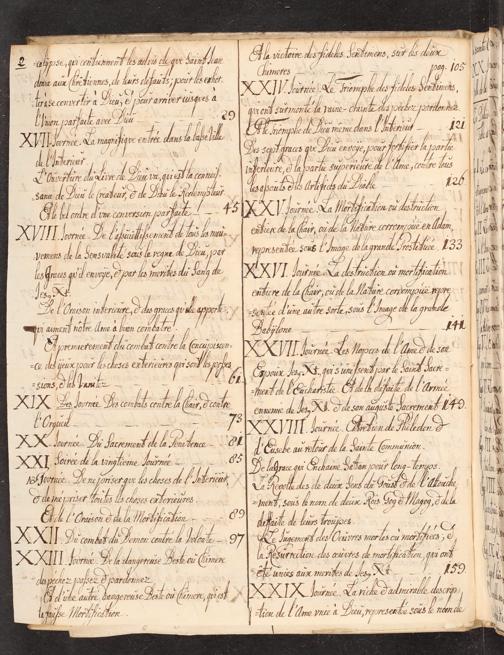 2
calypse, qui contiennent les advis de que Saint Jean
donne aux Chrétiennes, de leurs défauts, pour les exhor-
ter à se convertir à Dieu, & pour arriver jusques à
l'Union parfaite avec Dieu 29
XVII Journée. La magnifique entrée dans la belle ville
de l'Interieur
L'Ouverture du Livre de Dieu vu, qui est la connois-
sance de Dieu le Createur, & de Dieu le Redempteur
Et le bel ordre d'une conversion parfaite 45
XVIII Journée. De l'assujettissement de tous les mou-
vemens de la Sensualité sous le regne de Dieu, par
les Graces qu'il envoye, & par les merites du Sang de
Jes. Xt.
De l'Oraison interieure, & des graces qu'elle apporte
qui aiment nôtre ame à bien combatre
Et premierement du combat contre la Concupiscen-
-ce des yeux pour les choses exterieures qui sont les posses-
sions, & les 61
XIX Journée Des combats contre la Chair, & contre
l'Orgueil 73
XX Journée Du Sacrement de la Penitence 81
XXI Soirée de la vingtieme Journée 85
Journée. De ne priser que les choses de l'Interieur
& a mepriser toutes les choses exterieures
Et de l'Oraison & de la Mortification 89
XXII Du combat du Demon contre la Volonté 97
XXIII Journée De la dangereuse Beste ou Chimere
des pechez passez & pardonnez
Et d'une autre dangereuse Beste ou Chimere, qui est
la fausse Mortification.
A la victoire des fideles Sentimens, sur les deux
Chimeres pag. 105
XXIV Journée. Le Triomphe des fideles Sentimens,
qui ont surmonté la vaine crainte des pechez pardonnez
Et le triomphe de Dieu meme dans l'Interieur 121
Des sept graces que Dieu envoye, pour fortifier la partie
inferieure, & la partie superieure de l'Ame, contre tous
les assauts & les Artifices du Diable 126
XXV Journée. La Mortification ou destruction
entiere de la Chair, ou de la Nature corrompue en Adam,
representée sous l'Image de la grande Prostituée 133
XXVI Journée La destruction ou mortification
entiere de la Chair, ou de la Nature corrompue repre-
sentée d'une autre sorte, sous l'Image de la grande
Babylone 141
XXVII Journée Les Nopces de l'Ame & de son
Epoux Jes. Xt. qui s'unissent par le Saint Sacre-
ment de l'Eucharistie. Et de la défaite de l'Armée
ennemie de Jes. Xt. & de son auguste Sacrement 149
XXVIII Journée. Entretien de Philedon &
d'Eusebe au retour de la Sainte Communion.
De la grace qui Enchaine Satan pour long-temps.
La Revolte des de deux Sens du Goust & de l'Attouche
-ment, sous le nom de deux Rois Gog & Magog, & de la
défaite de leurs troupes
Le Jugement des Oeuvres mortes ou mortifiées, &
la Resurrection des oeuvres de mortification, qui ont
été unies aux merites de Jes. Xt. 159
XXIX Journée La riche & admirable descrip-
tion de l'Ame unie à Dieu, representée sous le nom de